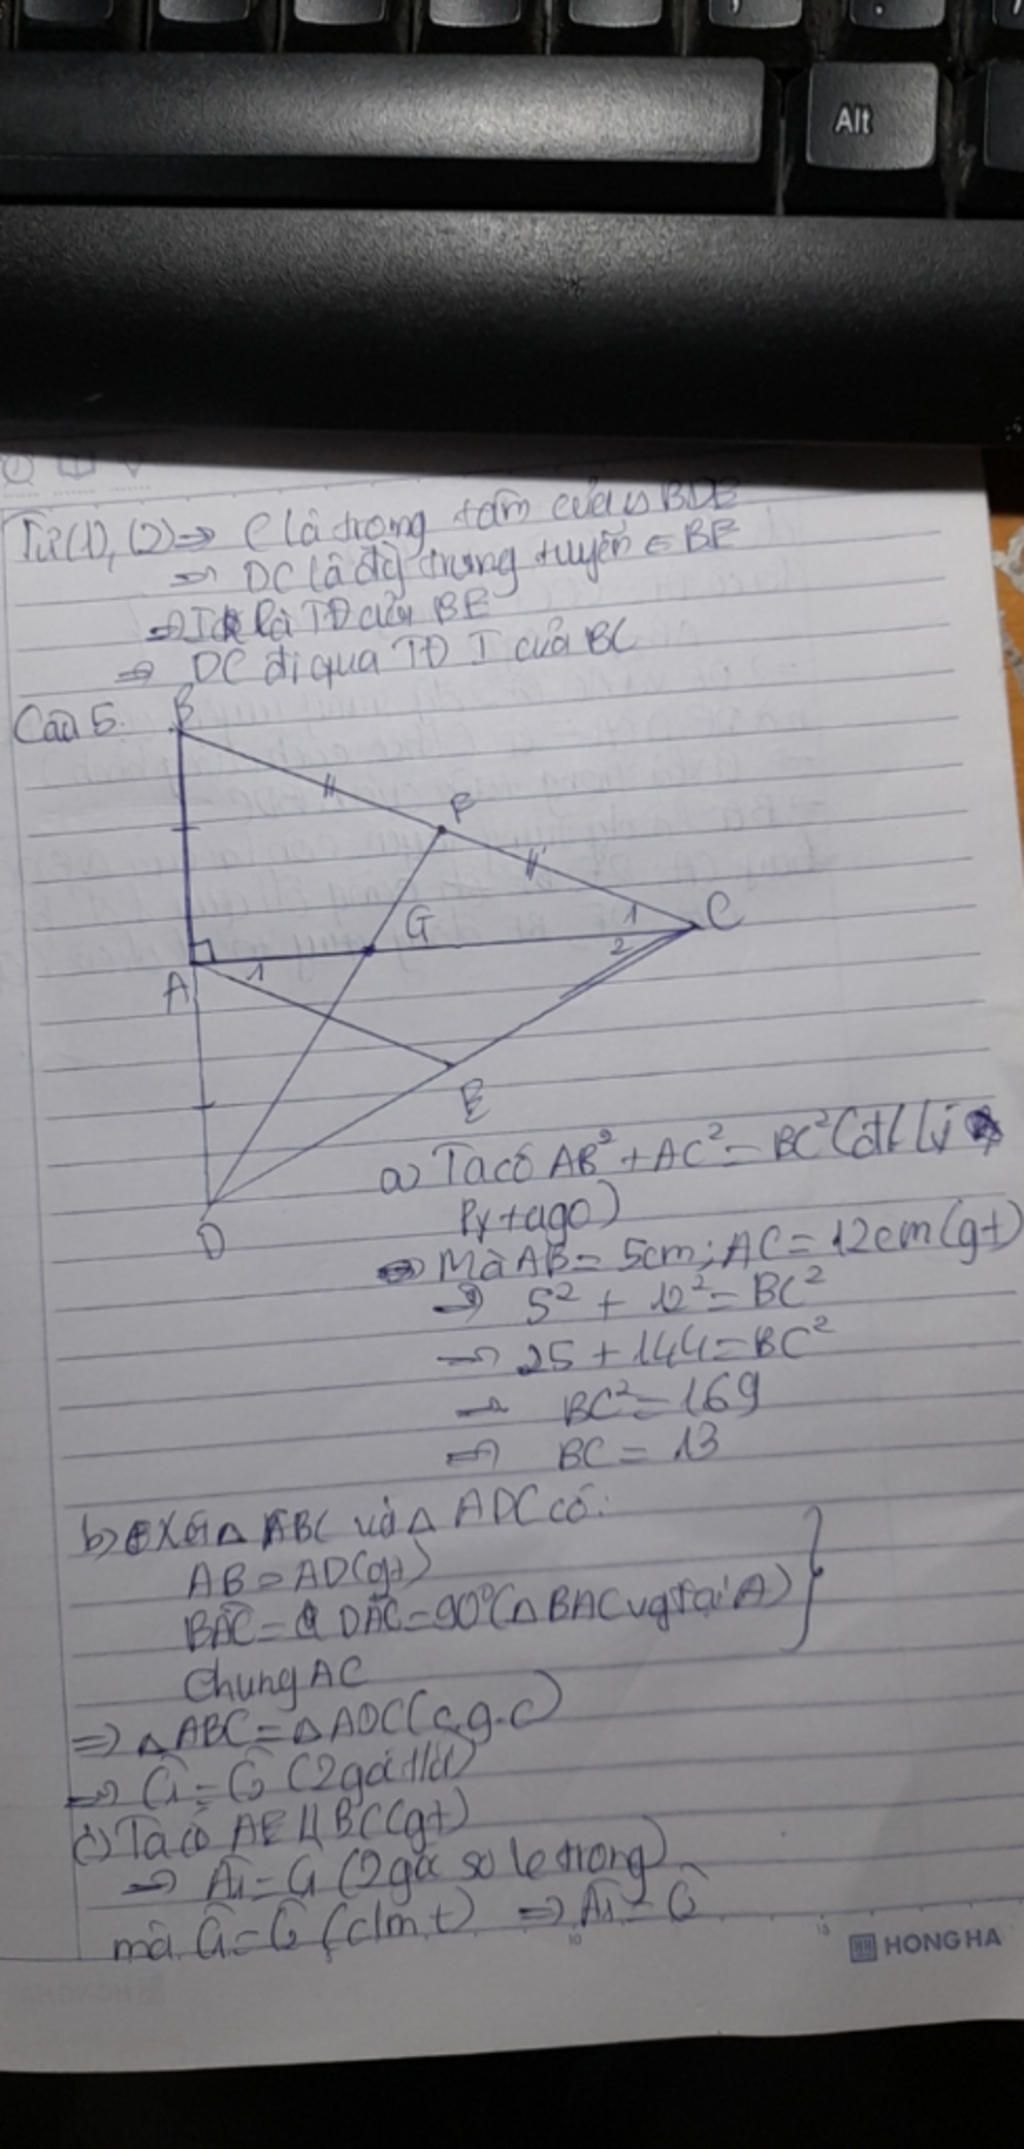 Alt
Từ (1), (2) => C là trọng tâm của △ BDE
=> DC là đg trung tuyến ∈ BE
=> I là TĐ của BE
=> DC đi qua TĐ I của BC
Câu 5.
B
F
G
C
1
2
A
1
E
D
a) Ta có AB² + AC² = BC² (đl lý
Pytago)
Mà AB = 5cm; AC = 12cm (gt)
=> 5² + 12² = BC²
=> 25 + 144 = BC²
=> BC² = 169
=> BC = 13
b) Xét △ ABC và △ ADC có:
AB = AD (gt)
BAC = DAC = 90° (△ BAC vg tại A)
Chung AC
=> △ ABC = △ ADC (c.g.c)
=> Ĉ1 = Ĉ2 (2 góc t/ư)
c) Ta có AE // BC (gt)
=> Â1 = Ĉ1 (2 góc so le trong)
mà Ĉ1 = Ĉ2 (cm t) => Â1 = Ĉ2
10
15
HONG HA